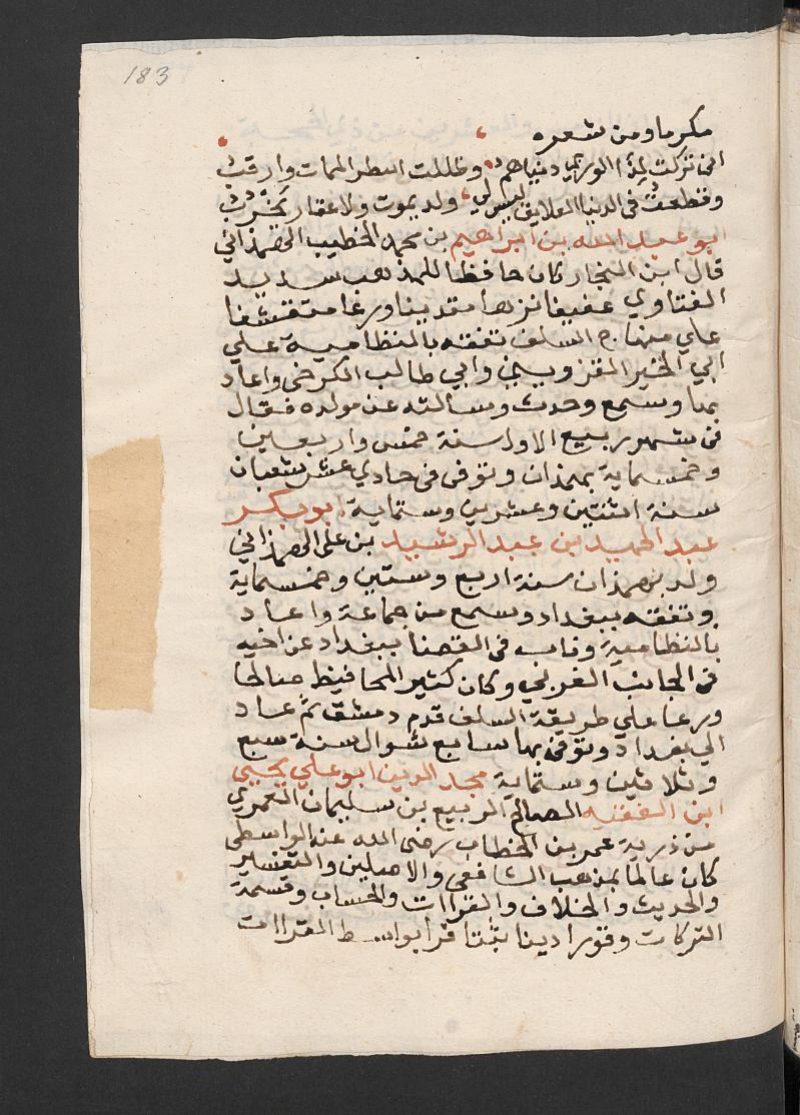 183
مكرما ومن شعره
انى تركت لذا الورى دنياهم وظللت انتظر الممات وارقب
وقطعت فى الدنيا العلايق ليس لي ولد يموت ولا عقار يخرب
ابو عبد الله بن ابراهيم بن محمد الخطيب الهمذانى
قال ابن النجار كان حافظا للمذهب سديد
الفتاوي عفيفا نزها متدينا ورعا متقشفا
علي منهاج السلف تفقه بالنظامية علي
ابي الخير القزويني وابي طالب الكرخى واعاد
بها وسمع وحدث وسالته عن مولده فقال
فى شهر ربيع الاول سنة خمس واربعين
وخمسماية بهمذان وتوفى فى حادي عشر شعبان
سنة اثنتين وعشرين وستماية ابو بكر
عبد الحميد بن عبد الرشيد بن على الهمذانى
ولد بهمذان سنة اربع وستين وخمسماية
وتفقه ببغداد وسمع من جماعة واعاد
بالنظامية وناب فى القضا ببغداد عن اخيه
فى الجانب الغربي وكان كثير المحافيظ صالحا
ورعا علي طريقة السلف قدم دمشق ثم عاد
الي بغداد وتوفى بها سابع شوال سنة سبع
وثلاثين وستماية مجد الدين ابو علي يحيى
ابن الفقيه الصالح الربيع بن سليمان العمري
من ذرية عمر بن الخطاب رضى الله عنه الواسطى
كان عالما بمذهب الشافعى والاصلين والتفسير
والحديث والخلاف والقراات والحساب وقسمة
التركات وقورا دينا ثبتا قرا بواسط القراات